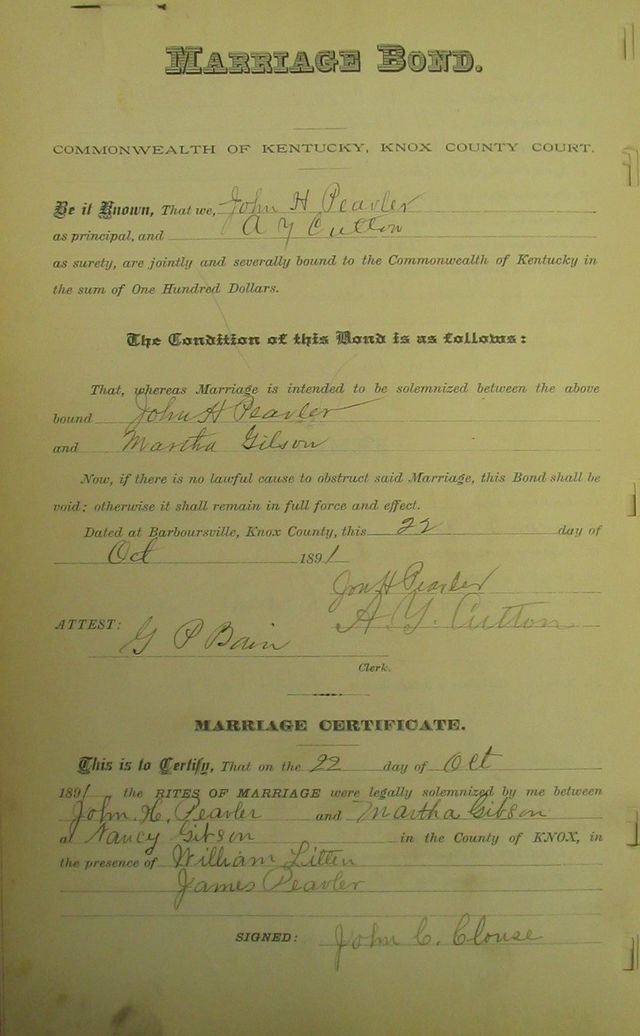 MARRIAGE BOND.
COMMONWEALTH OF KENTUCKY, KNOX COUNTY COURT.
Be it Known, That we, John H Peavler
as principal, and A Y Cutton
as surety, are jointly and severally bound to the Commonwealth of Kentucky in
the sum of One Hundred Dollars.
The Condition of this Bond is as follows:
That, whereas Marriage is intended to be solemnized between the above
bound John H Peavler
and Martha Gilson
Now, if there is no lawful cause to obstruct said Marriage, this Bond shall be
void; otherwise it shall remain in full force and effect.
Dated at Barboursville, Knox County, this 22 day of
Oct 1891
Jon H Peavler
A. Y. Cutton
ATTEST: G P Bain
Clerk.
MARRIAGE CERTIFICATE.
This is to Certify, That on the 22 day of Oct
1891 the RITES OF MARRIAGE were legally solemnized by me between
John. H. Peavler and Martha Gibson
at Nancy Gibson in the County of KNOX, in
the presence of William Litten
James Peavler
SIGNED: John C. Clouse